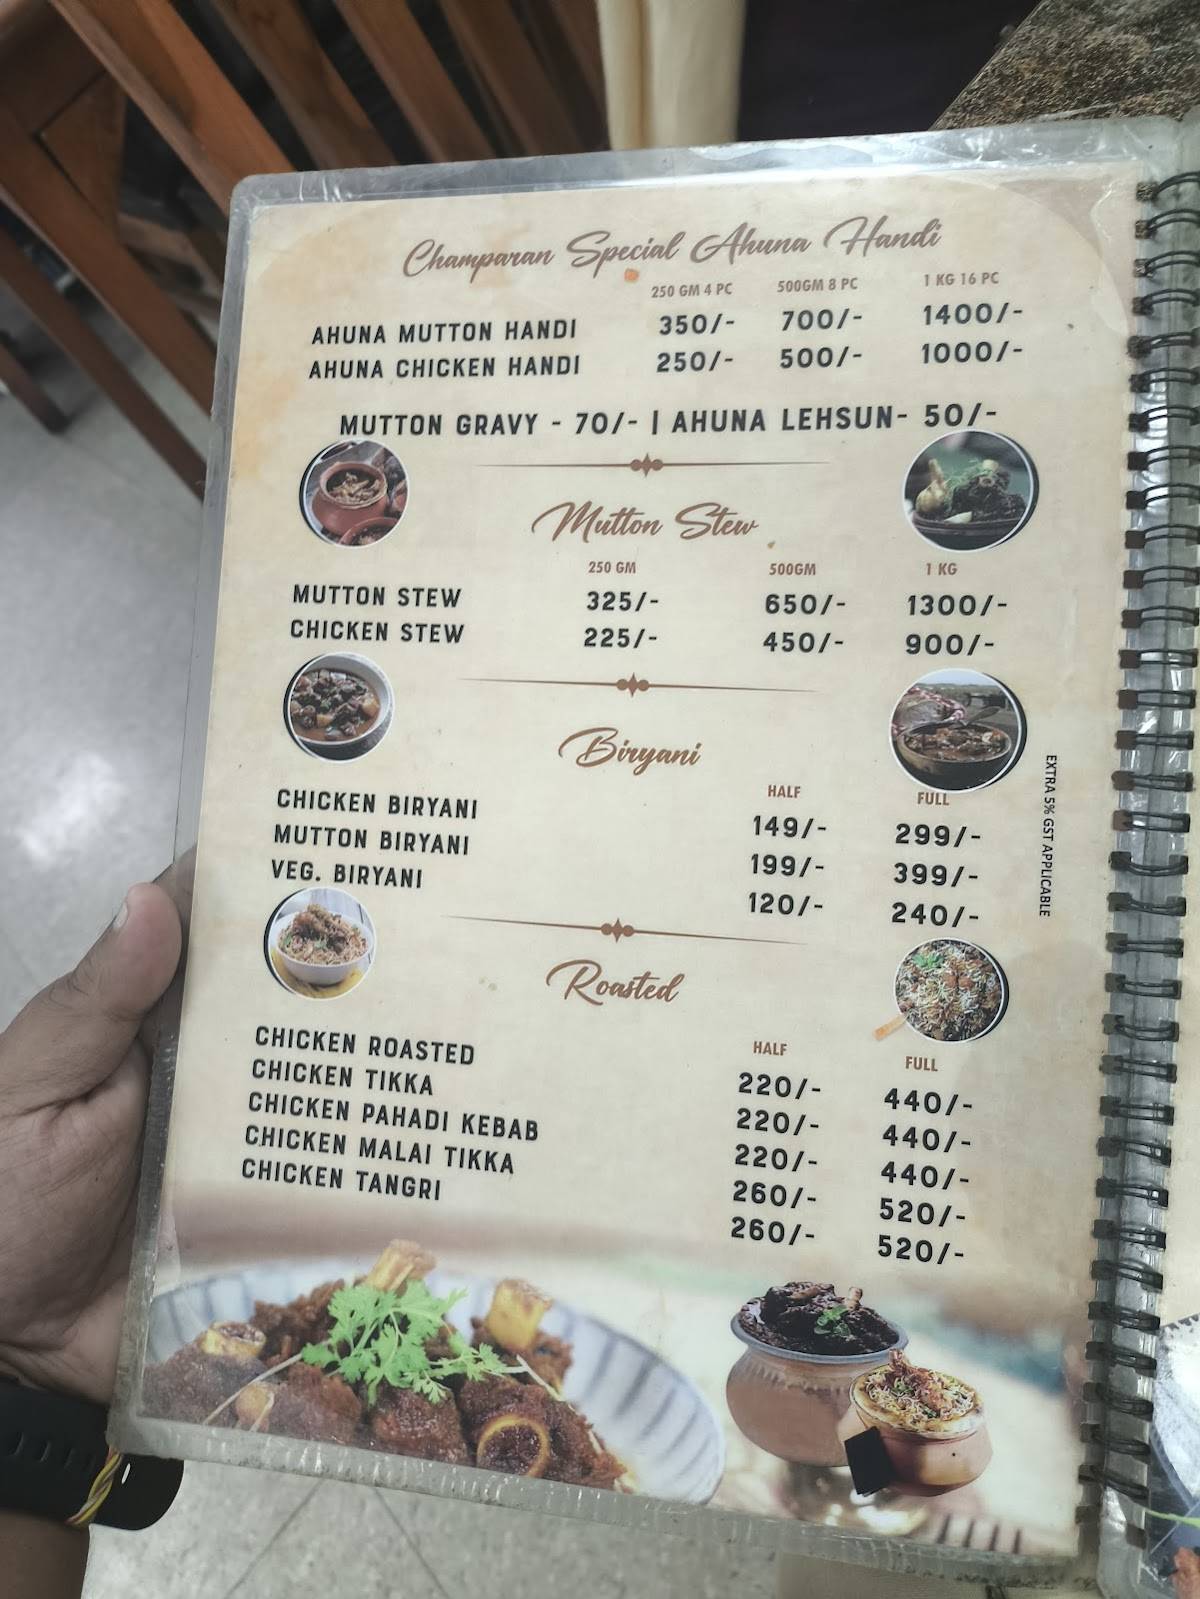 Champaran Special Ahuna Handi
250 GM 4 PC 500GM 8 PC 1 KG 16 PC
AHUNA MUTTON HANDI 350/- 700/- 1400/-
AHUNA CHICKEN HANDI 250/- 500/- 1000/-
MUTTON GRAVY - 70/- | AHUNA LEHSUN- 50/-
Mutton Stew
250 GM 500GM 1 KG
MUTTON STEW 325/- 650/- 1300/-
CHICKEN STEW 225/- 450/- 900/-
Biryani
HALF FULL
CHICKEN BIRYANI 149/- 299/-
MUTTON BIRYANI 199/- 399/-
VEG. BIRYANI 120/- 240/-
EXTRA 5% GST APPLICABLE
Roasted
HALF FULL
CHICKEN ROASTED 220/- 440/-
CHICKEN TIKKA 220/- 440/-
CHICKEN PAHADI KEBAB 220/- 440/-
CHICKEN MALAI TIKKA 260/- 520/-
CHICKEN TANGRI 260/- 520/-